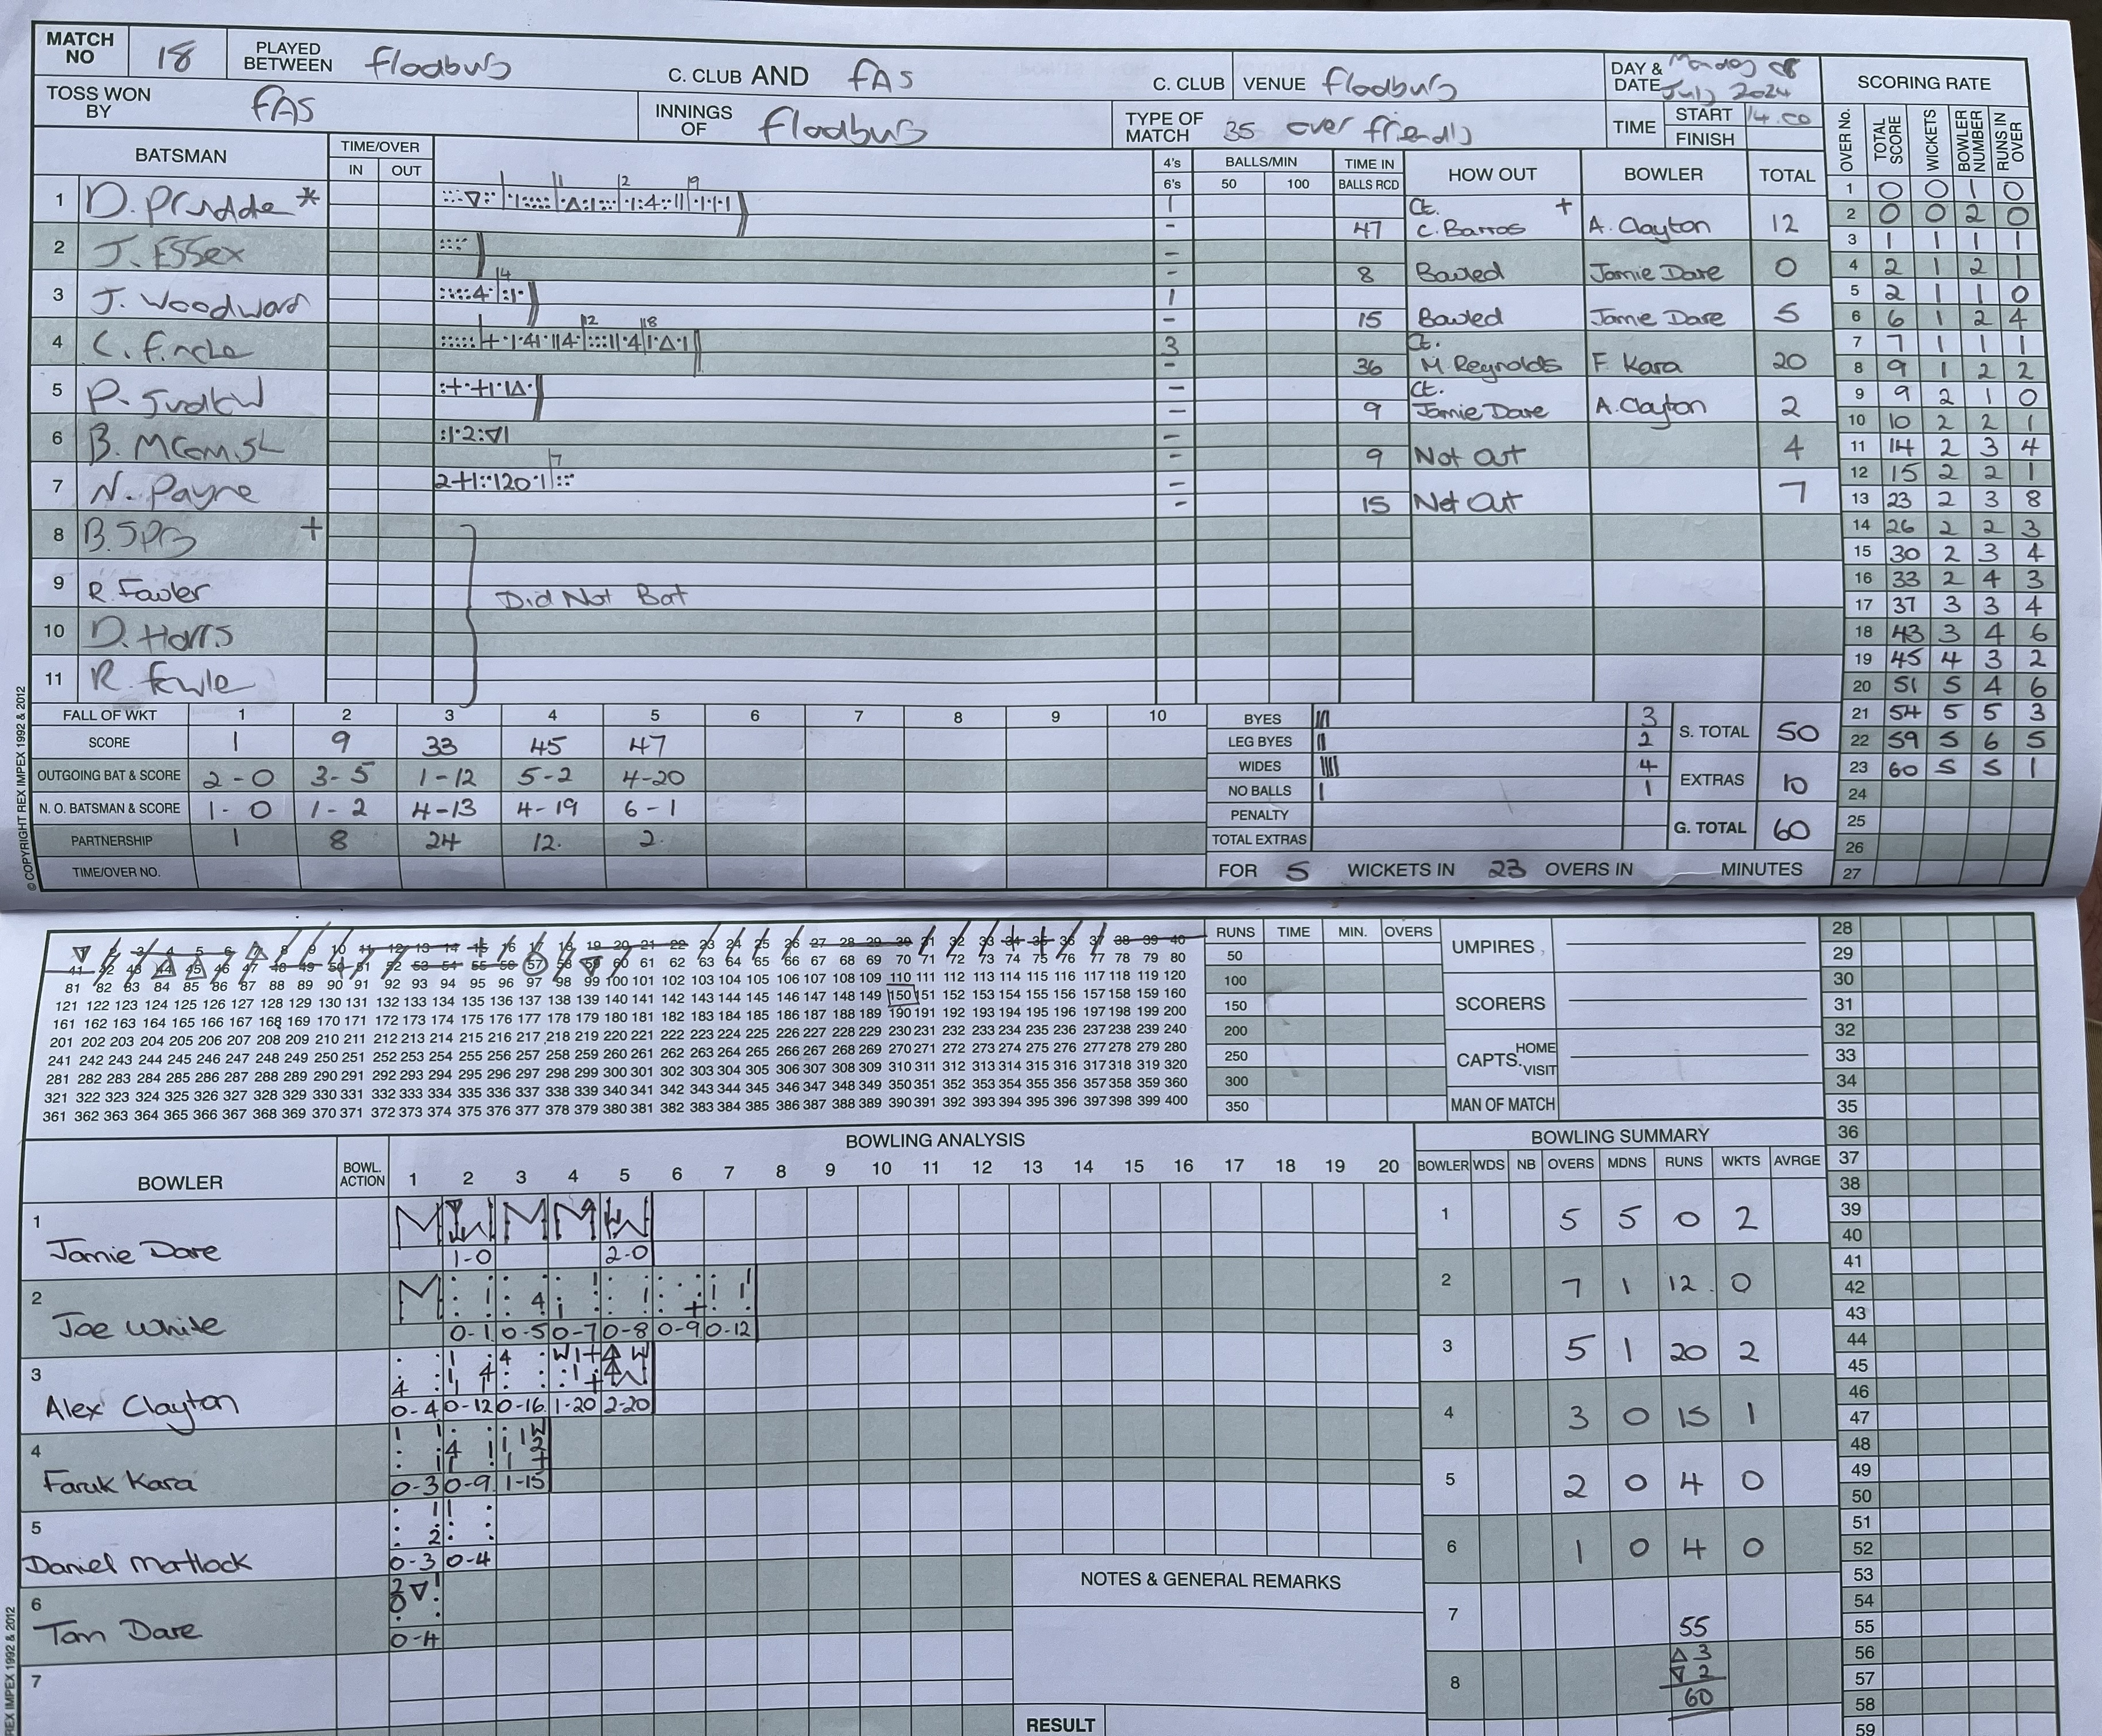 MATCH NO 18 PLAYED BETWEEN Flodbury C. CLUB AND FAS C. CLUB VENUE Flodbury DAY & DATE Monday 08 July 2024 SCORING RATE
TOSS WON BY FAS INNINGS OF Flodbury TYPE OF MATCH 35 over friendly TIME START 14.00 FINISH
OVER No. TOTAL SCORE WICKETS BOWLER NUMBER RUNS IN OVER
BATSMAN TIME/OVER IN OUT 4's 6's BALLS/MIN 50 100 TIME IN BALLS RCD HOW OUT BOWLER TOTAL
1 D. * 1 - 47 Ct. + C. Barros A. Clayton 12
2 J. Essex - - 8 Bowled Jamie Dare 0
3 J. Woodward 1 - 15 Bowled Jamie Dare 5
4 C. 3 - 36 Ct. M. Reynolds F. Kara 20
5 P. - - 9 Ct. Jamie Dare A. Clayton 2
6 B. - - 9 Not Out 4
7 N. Payne - - 15 Not Out 7
8 B. +
9 R. Fowler Did Not Bat
10 D. Harris
11 R.
1 0 0 1 0
2 0 0 2 0
3 1 1 1 1
4 2 1 2 1
5 2 1 1 0
6 6 1 2 4
7 7 1 1 1
8 9 1 2 2
9 9 2 1 0
10 10 2 2 1
11 14 2 3 4
12 15 2 2 1
13 23 2 3 8
14 26 2 2 3
15 30 2 3 4
16 33 2 4 3
17 37 3 3 4
18 43 3 4 6
19 45 4 3 2
20 51 5 4 6
21 54 5 5 3
22 59 5 6 5
23 60 5 5 1
24
25
26
27
FALL OF WKT 1 2 3 4 5 6 7 8 9 10
SCORE 1 9 33 45 47
OUTGOING BAT & SCORE 2-0 3-5 1-12 5-2 4-20
N. O. BATSMAN & SCORE 1-0 1-2 4-13 4-19 6-1
PARTNERSHIP 1 8 24 12 2
TIME/OVER NO.
BYES 3
LEG BYES 2
WIDES 4
NO BALLS 1
PENALTY
TOTAL EXTRAS
S. TOTAL 50
EXTRAS 10
G. TOTAL 60
FOR 5 WICKETS IN 23 OVERS IN MINUTES
© COPYRIGHT REX IMPEX 1992 & 2012
2 3 4 5 6 7 8 9 10 11 12 13 14 15 16 17 18 19 20 21 22 23 24 25 26 27 28 29 30 31 32 33 34 35 36 37 38 39 40
41 42 43 44 45 46 47 48 49 50 51 52 53 54 55 56 57 58 59 60 61 62 63 64 65 66 67 68 69 70 71 72 73 74 75 76 77 78 79 80
81 82 83 84 85 86 87 88 89 90 91 92 93 94 95 96 97 98 99 100 101 102 103 104 105 106 107 108 109 110 111 112 113 114 115 116 117 118 119 120
121 122 123 124 125 126 127 128 129 130 131 132 133 134 135 136 137 138 139 140 141 142 143 144 145 146 147 148 149 150 151 152 153 154 155 156 157 158 159 160
161 162 163 164 165 166 167 168 169 170 171 172 173 174 175 176 177 178 179 180 181 182 183 184 185 186 187 188 189 190 191 192 193 194 195 196 197 198 199 200
201 202 203 204 205 206 207 208 209 210 211 212 213 214 215 216 217 218 219 220 221 222 223 224 225 226 227 228 229 230 231 232 233 234 235 236 237 238 239 240
241 242 243 244 245 246 247 248 249 250 251 252 253 254 255 256 257 258 259 260 261 262 263 264 265 266 267 268 269 270 271 272 273 274 275 276 277 278 279 280
281 282 283 284 285 286 287 288 289 290 291 292 293 294 295 296 297 298 299 300 301 302 303 304 305 306 307 308 309 310 311 312 313 314 315 316 317 318 319 320
321 322 323 324 325 326 327 328 329 330 331 332 333 334 335 336 337 338 339 340 341 342 343 344 345 346 347 348 349 350 351 352 353 354 355 356 357 358 359 360
361 362 363 364 365 366 367 368 369 370 371 372 373 374 375 376 377 378 379 380 381 382 383 384 385 386 387 388 389 390 391 392 393 394 395 396 397 398 399 400
RUNS TIME MIN. OVERS
50
100
150
200
250
300
350
UMPIRES
SCORERS
CAPTS. HOME VISIT
MAN OF MATCH
BOWLING ANALYSIS BOWLING SUMMARY
BOWLER BOWL. ACTION 1 2 3 4 5 6 7 8 9 10 11 12 13 14 15 16 17 18 19 20 BOWLER WDS NB OVERS MDNS RUNS WKTS AVRGE
1 Jamie Dare 1-0 2-0 1 5 5 0 2
2 Joe White 0-1 0-5 0-7 0-8 0-9 0-12 2 7 1 12 0
3 Alex Clayton 0-4 0-12 0-16 1-20 2-20 3 5 1 20 2
4 Faruk Kara 0-3 0-9 1-15 4 3 0 15 1
5 Daniel Matlock 0-3 0-4 5 2 0 4 0
6 Tom Dare 0-4 6 1 0 4 0
7 7 55
△ 3
▽ 2
8 60
NOTES & GENERAL REMARKS
RESULT
28
29
30
31
32
33
34
35
36
37
38
39
40
41
42
43
44
45
46
47
48
49
50
51
52
53
54
55
56
57
58
59
REX IMPEX 1992 & 2012